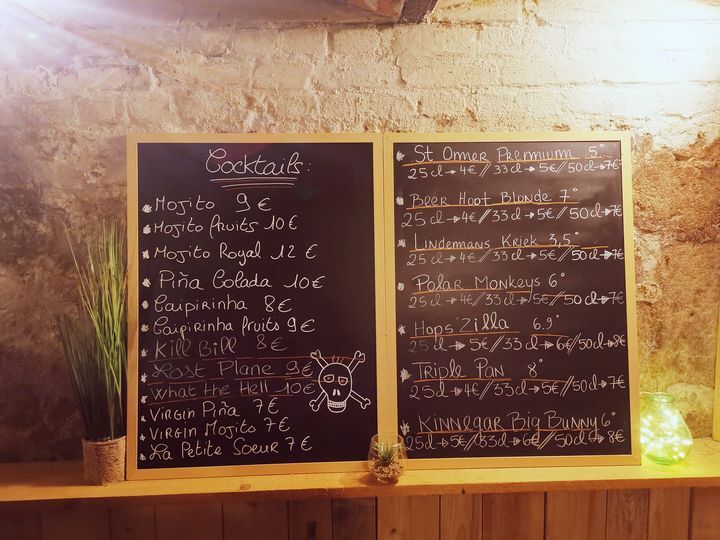 Cocktails:
Mojito 9€
Mojito fruits 10€
Mojito Royal 12€
Piña Colada 10€
Caipirinha 8€
Caipirinha fruits 9€
Kill Bill 8€
Lost Plane 9€
What the Hell 10€
Virgin Piña 7€
Virgin Mojito 7€
La Petite Soeur 7€
St Omer Premium 5°
25cl → 4€ // 33cl → 5€ // 50cl → 7€
Beer Hoot Blonde 7°
25cl → 4€ // 33cl → 5€ // 50cl → 7€
Lindemans Kriek 3,5°
25cl → 4€ // 33cl → 5€ // 50cl → 7€
Polar Monkeys 6°
25cl → 4€ // 33cl → 5€ // 50cl → 7€
Hops'Zilla 6.9°
25cl → 5€ // 33cl → 6€ // 50cl → 8€
Triple Pan 8°
25cl → 4€ // 33cl → 5€ // 50cl → 7€
Kinnegar Big Bunny 6°
25cl → 5€ // 33cl → 6€ // 50cl → 8€